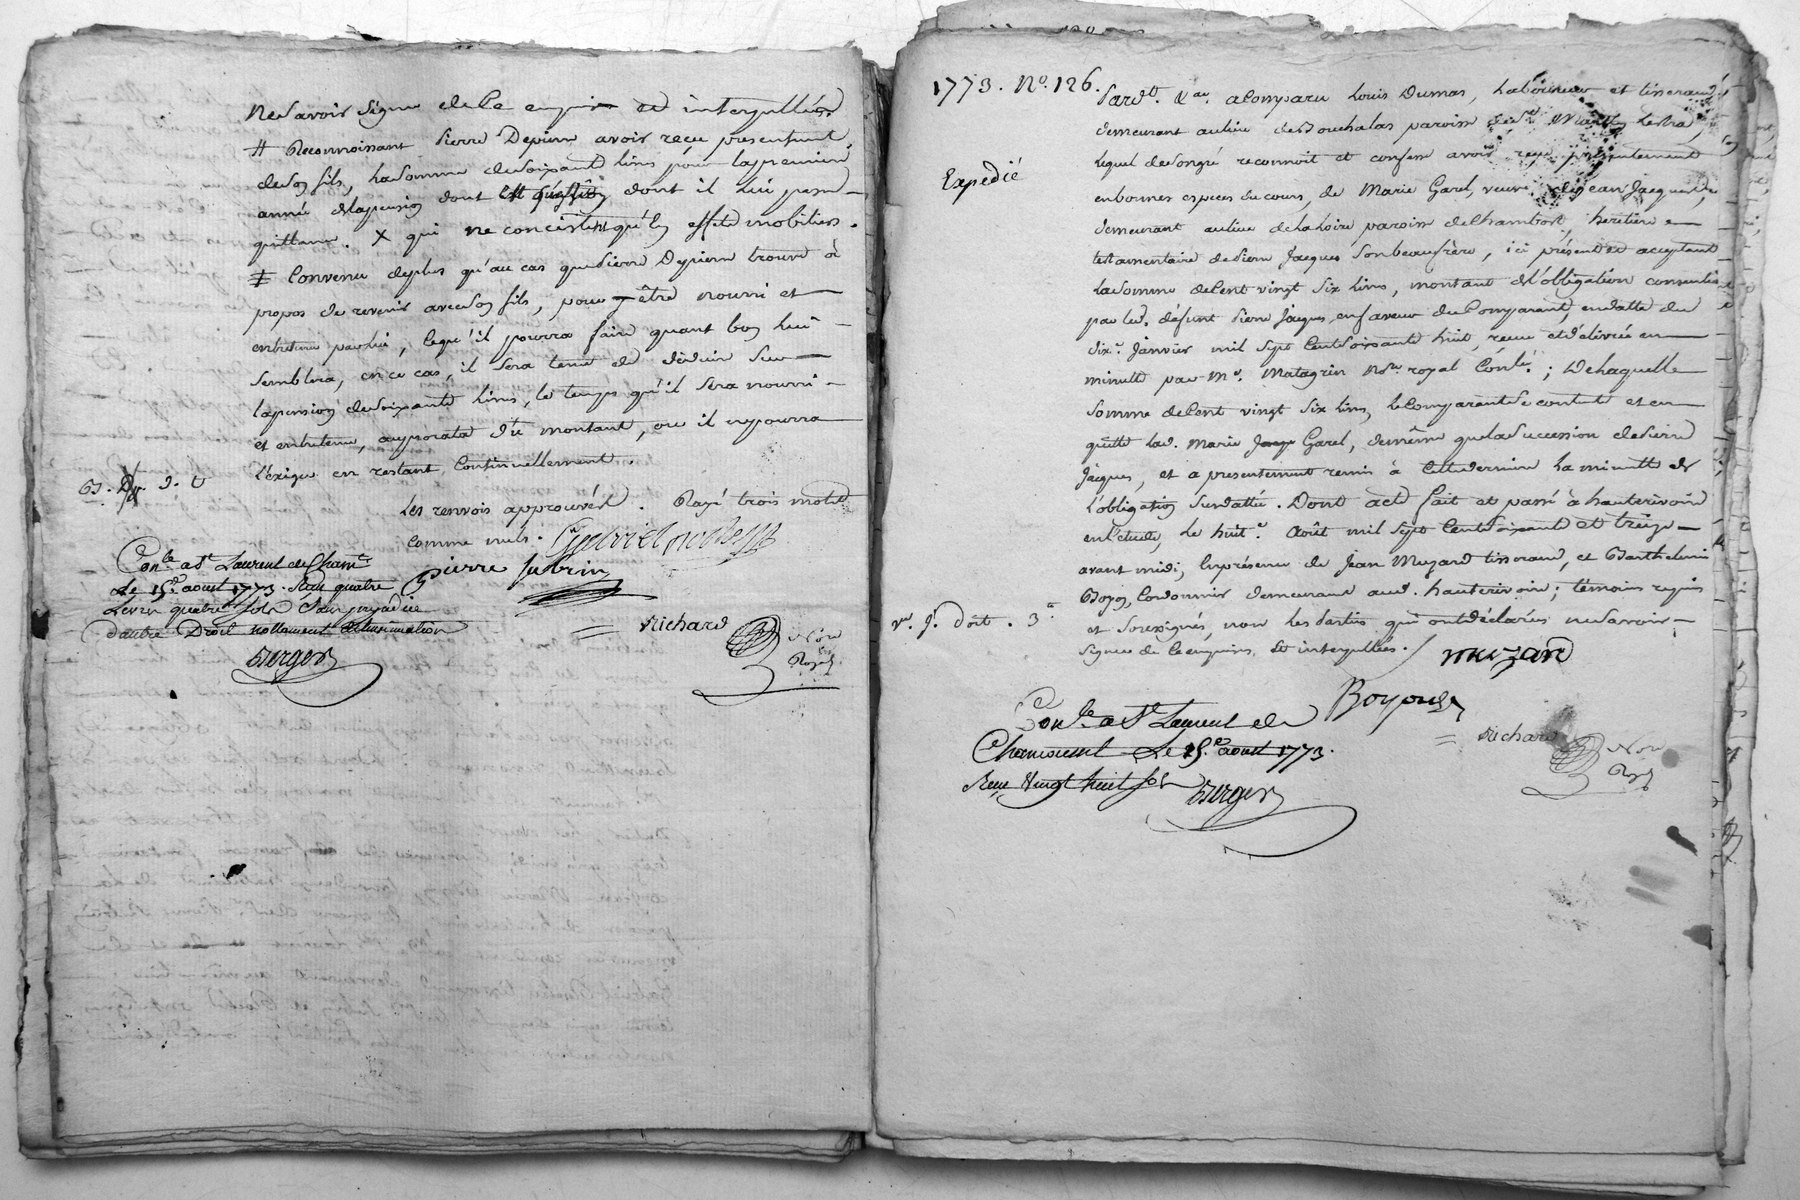 ne savoir signer de ce enquis et interpellés.
# Reconnoissant Pierre Depierre avoir reçu presentement
de son fils, la somme de soixante livres pour la premiere
année de la pension dont est question dont il lui passe
quittance. X qui ne concistent qu'en effets mobiliers.
# Convenu de plus qu'au cas que Pierre Depierre trouve à
propos de revenir avec son fils, pour y être nourri et
entretenu par lui, ce qu'il pourra faire quant bon lui
semblera, en ce cas, il sera tenu de déduire sur
la pension de soixante livres, le temps qu'il sera nourri
et entretenu, au prorata d'ic montant, ou il ne pourra
l'exiger en restant continuellement.
Les renvois approuvés. Rayé trois mots
comme nuls.
Con.le a St Laurent de Cham.t
Le 15.e aoust 1773. Reçu quatre
Livres quatre sols Sans préjudice
d'autre Droit nottament d'insinuation
Berger
pierre
Richard
Nore
Royal
1773. No. 126.
Pardt. &a. a Comparu Louis Dumas, Laboureur et tisserand
demeurant au lieu de Bouchalas paroisse de
lequel de son gré reconnoit et confesse avoir reçu présentement
en bonnes espèces du cours, de Marie Garel, veuve de Jean Jacques,
demeurant au lieu de la Loire paroisse de Chambost, héritiere
testamentaire de Pierre Jacques son beaufrère, ici présente et acceptant
la somme de Cent vingt six livres, montant de l'obligation consentie
par led. défunt Pierre Jacques, en faveur du Comparant, en datte du
dix.e Janvier mil sept Cent soixante huit, reçue et délivrée en
minutte par Me. Matagrin Nore. royal ; De laquelle
somme de Cent vingt six livres, le Comparant se contente et en
quitte lad. Marie Garel, de même que la succession de Pierre
Jacques, et a presentement remis à cette derniere la minutte de
l'obligation susdattée. Dont acte fait et passé à hauterivoire
en l'etude, le huit.e Août mil sept Cent soixante et treize
avant midi, en présence de Jean Muzard tisserand, et Barthelemi
Boyon, Cordonnier demeurant aud. hauterivoire; témoins requis
et soussignés, non les parties qui ont déclarées ne savoir
signer de ce enquis, et interpellés.
Expédié
muzard
Boyon
Con.le a St Laurent de
Chamousset Le 15.e aoust 1773.
Reçu vingt huit sols Berger
Richard
Nore
Royal